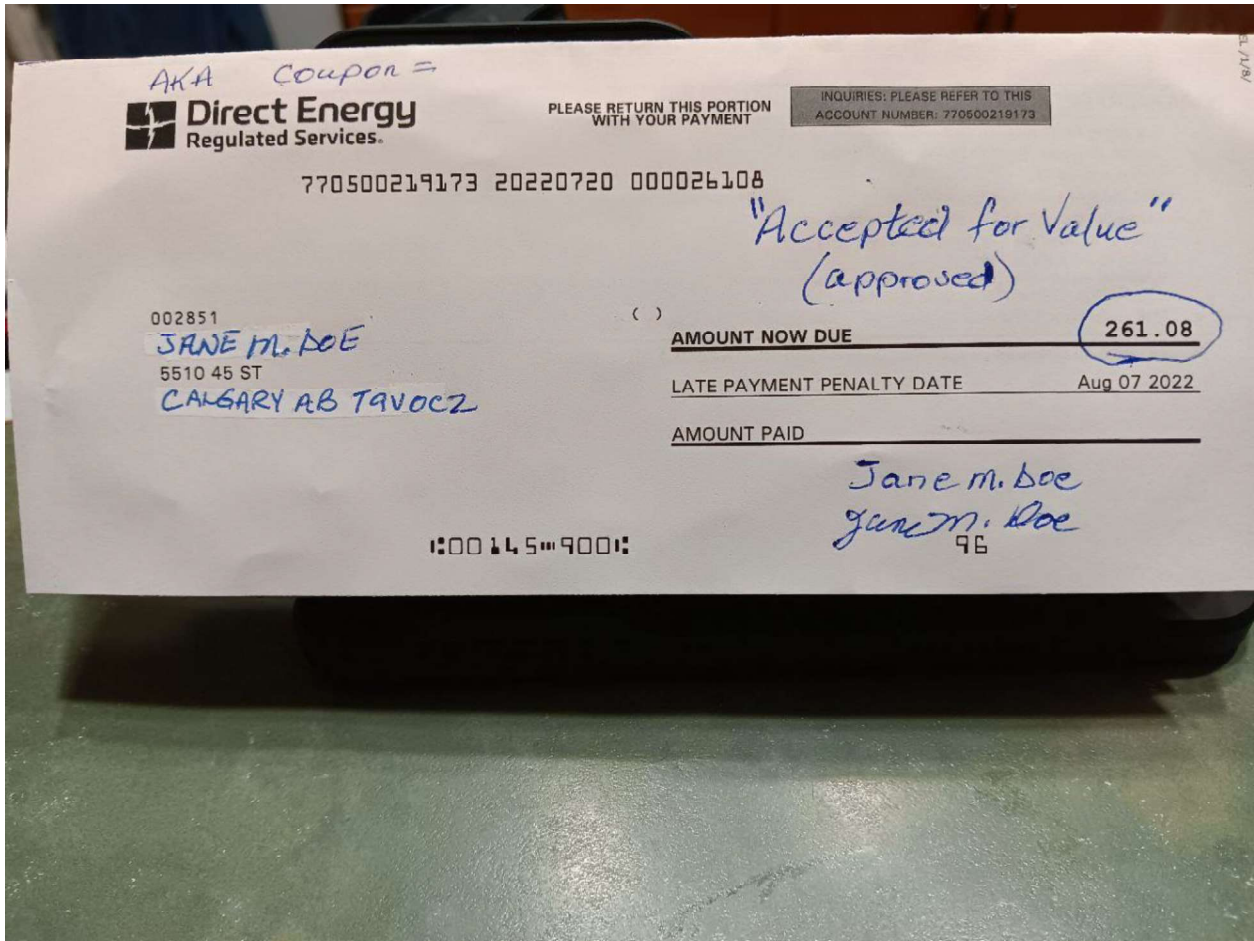 AKA Coupon =
Direct Energy
Regulated Services.
PLEASE RETURN THIS PORTION
WITH YOUR PAYMENT
INQUIRIES: PLEASE REFER TO THIS
ACCOUNT NUMBER: 770500219173
770500219173 20220720 000026108
"Accepted for Value"
(approved)
002851
JANE M. DOE
5510 45 ST
CALGARY AB T9V0C2
( )
AMOUNT NOW DUE 261.08
LATE PAYMENT PENALTY DATE Aug 07 2022
AMOUNT PAID
Jane M. Doe
Jane M. Doe
96
⑆00145⑉900⑆